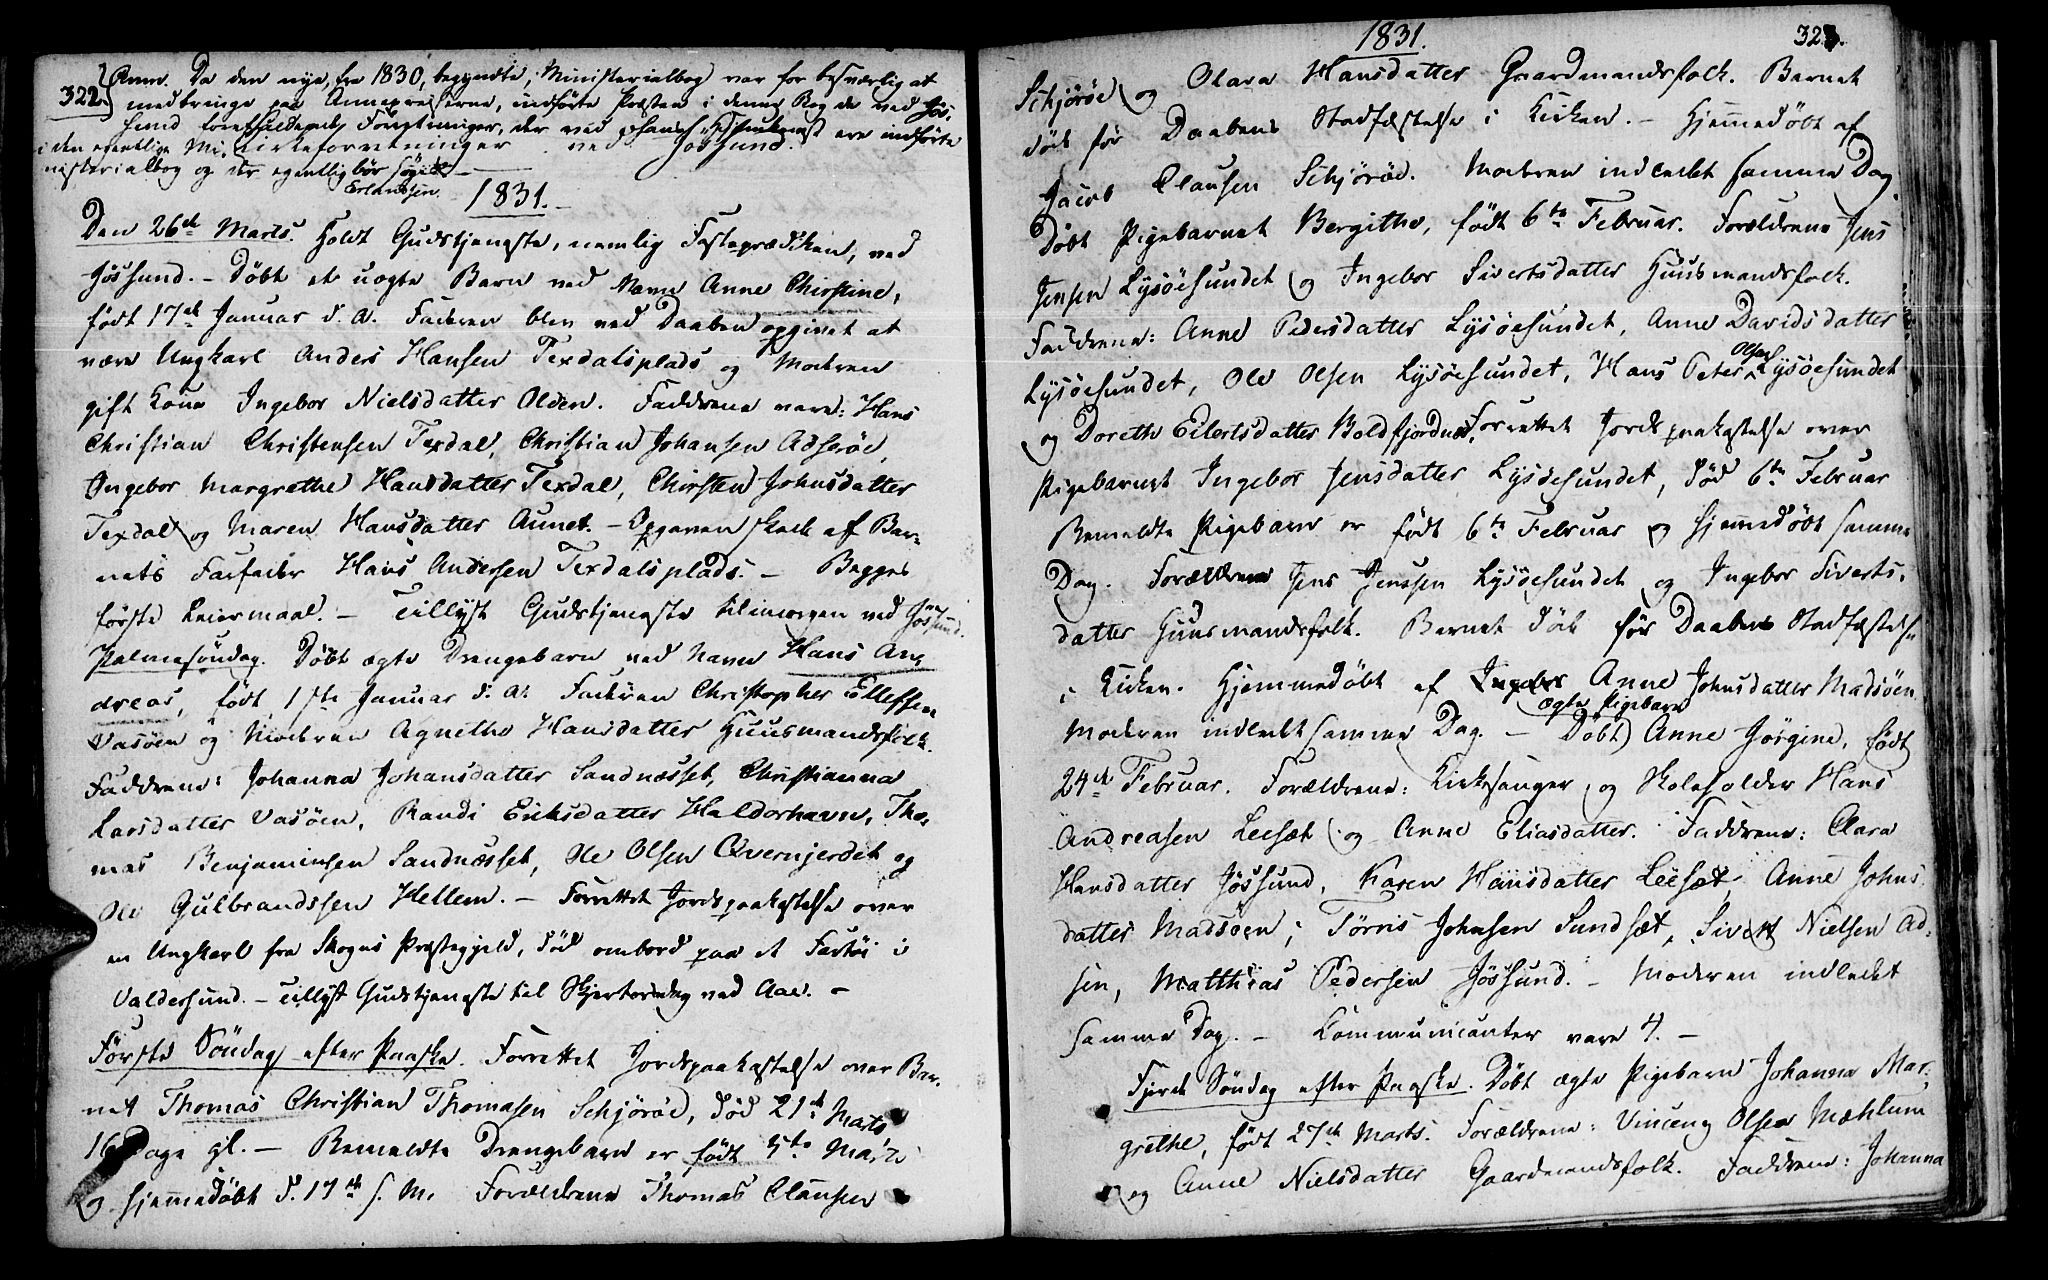 322.
Anm. Da den nye, fra 1830, begyndte, Ministerialbog var for besværlig at
medbringe paa Annexreiserne, indförte Præsten i denne Bog de ved Jös-
sund forefaldende Forretninger, der ved ere indförte
i den egentlige Mi- Kirkeforretninger ved Jössund.
nisterialbog og der egentlig bör söges
Erlandsen.
1831.
Den 26de Marts. Holdt Gudstjeneste, nemlig Fasteprædiken, ved
Jössund. - Döbt et uægte Barn ved Navn Anne Chirstine,
födt 17de Januar d. A. Faderen blev ved Daaben opgivet at
være Ungkarl Anders Hansen Texdalsplads og Moderen
gift Kone Ingebor Nielsdatter Olden. Faddrene vare: Hans
Christian Christensen Texdal, Christian Johansen Adseröe,
Ingebor Margrethe Hansdatter Texdal, Chirsten Johnsdatter
Texdal og Maren Hansdatter Aunet. - Opgaven skeede af Bar-
nets Farfader Hans Andersen Texdalsplads. - Begges
förste Leiermaal. - Tillyst Gudstjeneste til imorgen ved Jössund.
Palmesöndag. Döbt ægte Drengebarn ved Navn Hans An-
dreas, födt 1ste Januar d. A. Faderen Christopher Ellefsen
Vasöen og Moderen Agnethe Hansdatter Huusmandsfolk.
Faddrene: Johanna Johansdatter Sandnæsset, Christianna
Larsdatter Vasöen, Randi Eriksdatter Haldorhavn, Tho-
mas Benjaminsen Sandnæsset, Ole Olsen Qvernjerdet og
Ole Gulbrandssen Hellem. - Forrettet Jordspaakastelse over
en Ungkarl fra Skogns Præstegjeld, död ombord paa et Fartöi i
Valdersund. - Tillyst Gudstjeneste til Skjertorsdag ved Aae. -
Förste Söndag efter Paaske. Forrettet Jordspaakastelse over Bar-
net Thomas Christian Thomasen Schjöröe, död 21de Marts
16 Dage gl. - Bemeldte Drengebarn er födt 5te Marts
og hjemmedöbt d. 17de s. M. Forældrene Thomas Clausen
1831.
323.
Schjöröe og Olara Hansdatter Gaardmandsfolk. Barnet
döde för Daabens Stadfæstelse i Kirken. - Hjemmedöbt af
Jacob Clausen Schjöröe. Moderen indledet samme Dag
Döbt Pigebarnet Bergithe, födt 6te Februar. Forældrene Jens
Jensen Lysöesundet og Ingebor Sivertsdatter Huusmandsfolk.
Faddrene: Anne Pedersdatter Lysöesundet, Anne Davidsdatter
Lysöesundet, Ole Olsen Lysöesundet, Hans Peter Olsen Lysöesundet
og Doreth Eilertsdatter Boldfjordnæs, Forrettet Jordspaakastelse over
Pigebarnet Ingebor Jensdatter Lysöesundet, död 6te Februar
Bemeldte Pigebarn er födt 6te Februar og hjemmedöbt samme
Dag. Forældrene Jens Jenssen Lysöesundet og Ingebor Siverts-
datter Huusmandsfolk. Barnet döde för Daabens Stadfæstelse
i Kirken. Hjemmedöbt af Ingebor Anne Johnsdatter Madsöen
Moderen indledet samme Dag. - Döbt ægte Pigebarn Anne Jörgine, födt
24de Februar. Forældrene: Kirkesanger og Skoleholder Hans
Andreasen Leesæt og Anne Eliasdatter. Faddrene: Clara
Hansdatter Jössund, Karen Hansdatter Leesæt, Anne Johns-
datter Madsöen, Törris Johnsen Sundsæt, Sivert Nielsen Ad-
sen, Matthias Pedersen Jössund. - Moderen indledet
samme Dag. - Communicanter vare 4. -
Fjerde Söndag efter Paaske. Döbt ægte Pigebarn Johanna Mar-
grethe, födt 27de Marts. Forældrene: Vincenz Olsen Mæhlum
og Anne Nielsdatter Gaardmandsfolk. Faddrene: Johanna